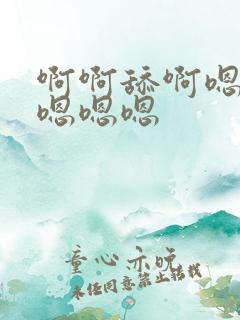 啊啊舔啊嗯
嗯嗯嗯
童心亦晚
未经同意禁止转载